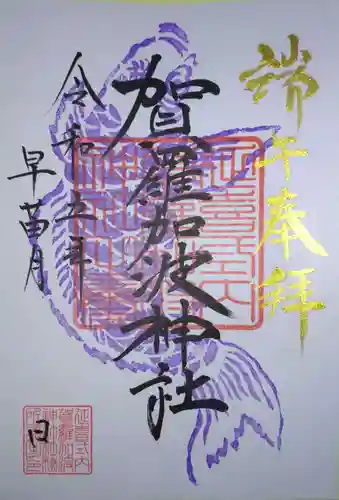 端午奉拝
賀羅加波神社
令和五年
早苗月
日